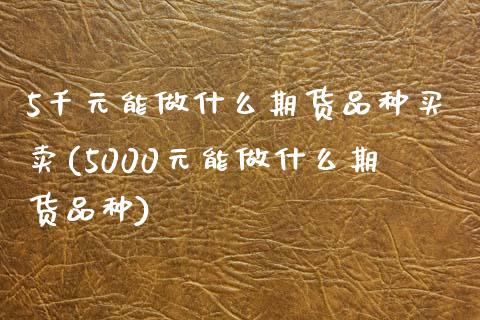 5千元能做什么期货品种买
卖(5000元能做什么期
货品种)